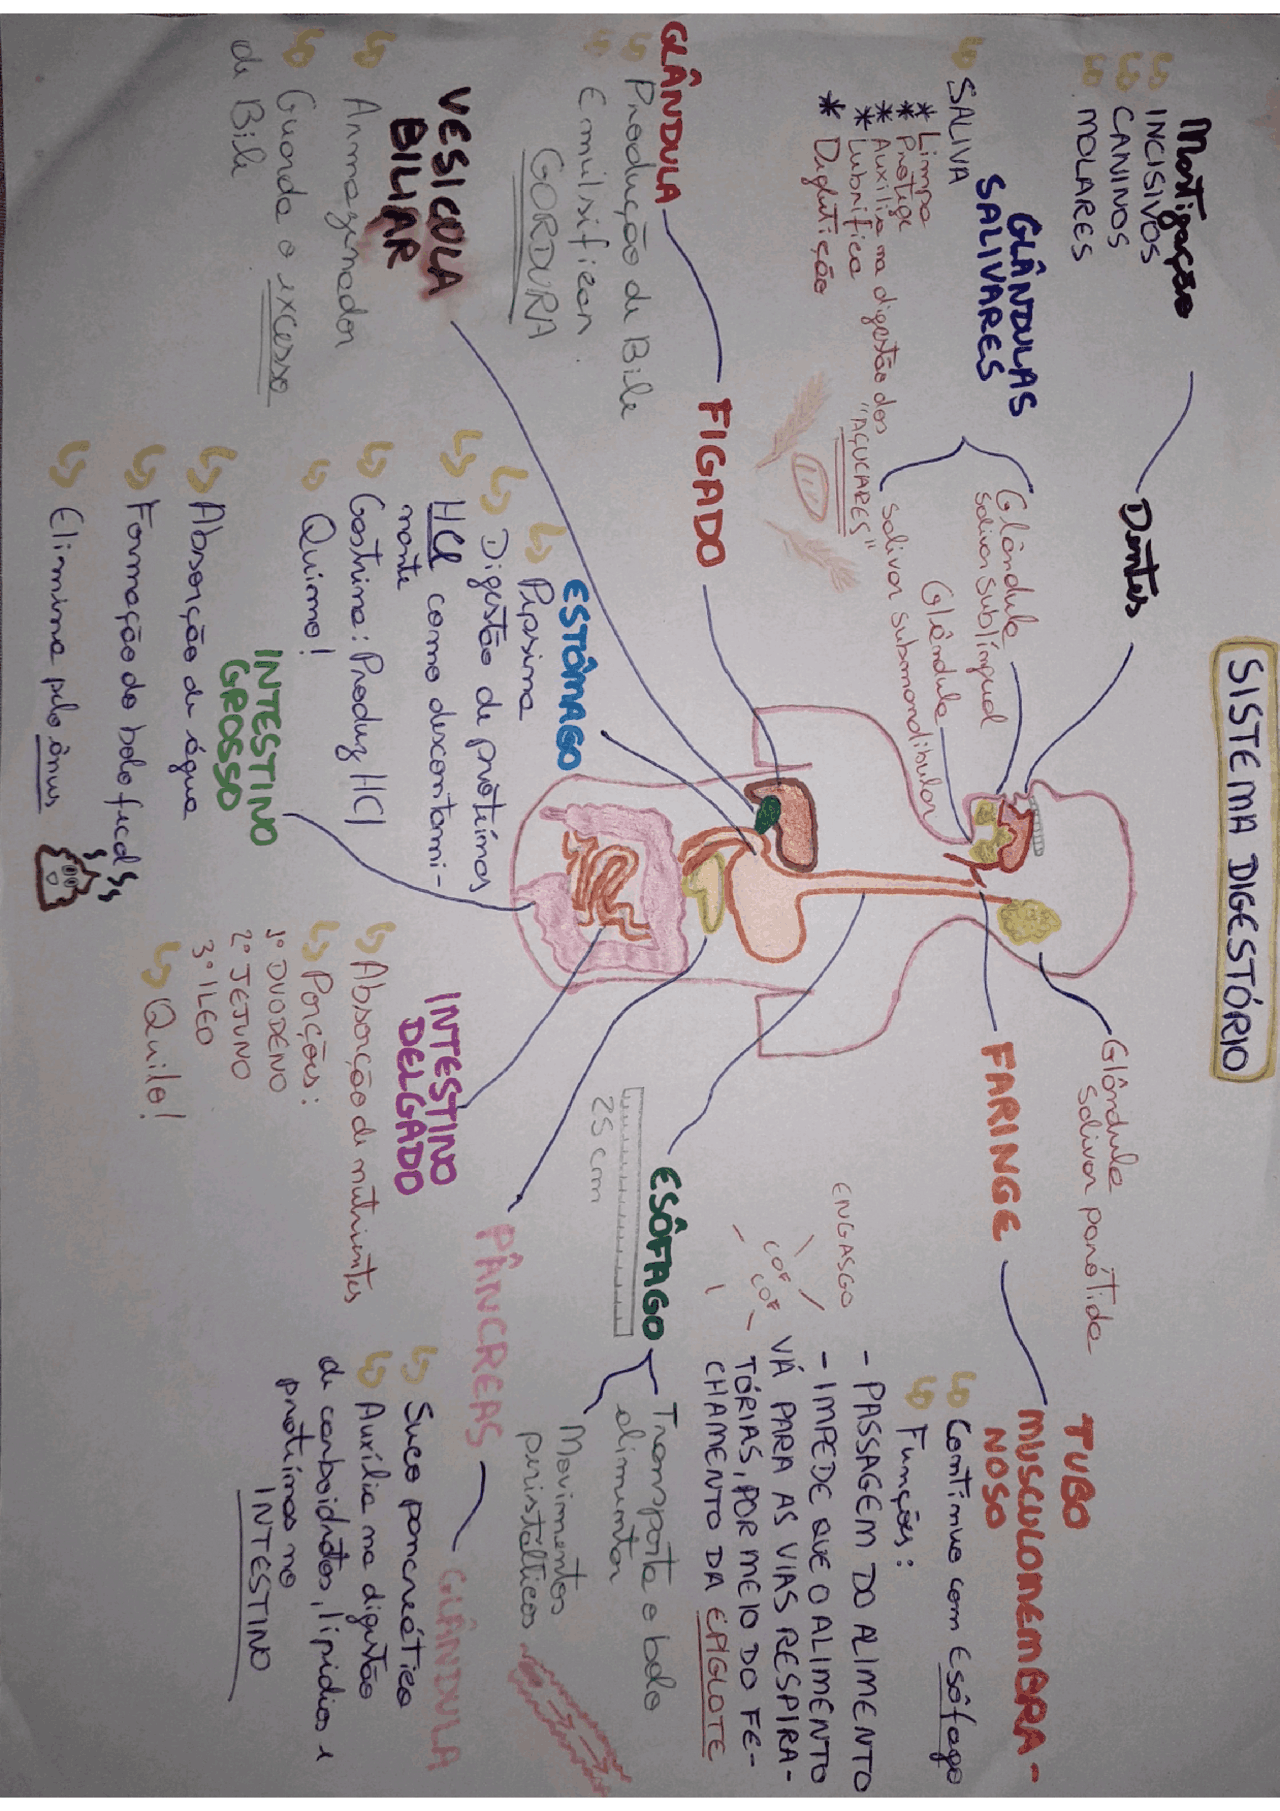 SISTEMA DIGESTÓRIO
Mastigação
INCISIVOS
CANINOS
MOLARES
Dentes
GLÂNDULAS
SALIVARES
SALIVA
* Limpa
* Protege
* Auxilia na digestão dos
"AÇUCARES"
* Lubrifica
* Deglutição
Glândula
salivar sublíngual
Glândula
salivar submandibular
Glândula
salivar parótida
FARINGE
TUBO
MUSCULOMEMBRA-
NOSO
Contínuo com Esôfago
Funções:
- PASSAGEM DO ALIMENTO
- IMPEDE QUE O ALIMENTO
VÁ PARA AS VIAS RESPIRA-
TÓRIAS, POR MEIO DO FE-
CHAMENTO DA EPIGLOTE
ENGASGO
COF
COF
GLÂNDULA
Produção de Bile
Emulsificar
GORDURA
FIGADO
ESÔFAGO
25 cm
Transporta o bolo
alimentar
Movimentos
peristálticos
VESICULA
BILIAR
Armazenador
Guarda o excesso
de Bile
ESTÔMAGO
Pepsina
Digestão de proteínas
HCl como descontami-
nante
Gastrina: Produz HCl
Quimo!
PÂNCREAS
GLÂNDULA
Suco pancreático
Auxilia na digestão
de carboidratos, lipidios e
proteínas no
INTESTINO
INTESTINO
DELGADO
Absorção de nutrientes
Porções:
1º DUODENO
2º JEJUNO
3º ILEO
Quilo!
INTESTINO
GROSSO
Absorção de água
Formação do bolo fecal
Elimina pelo ânus